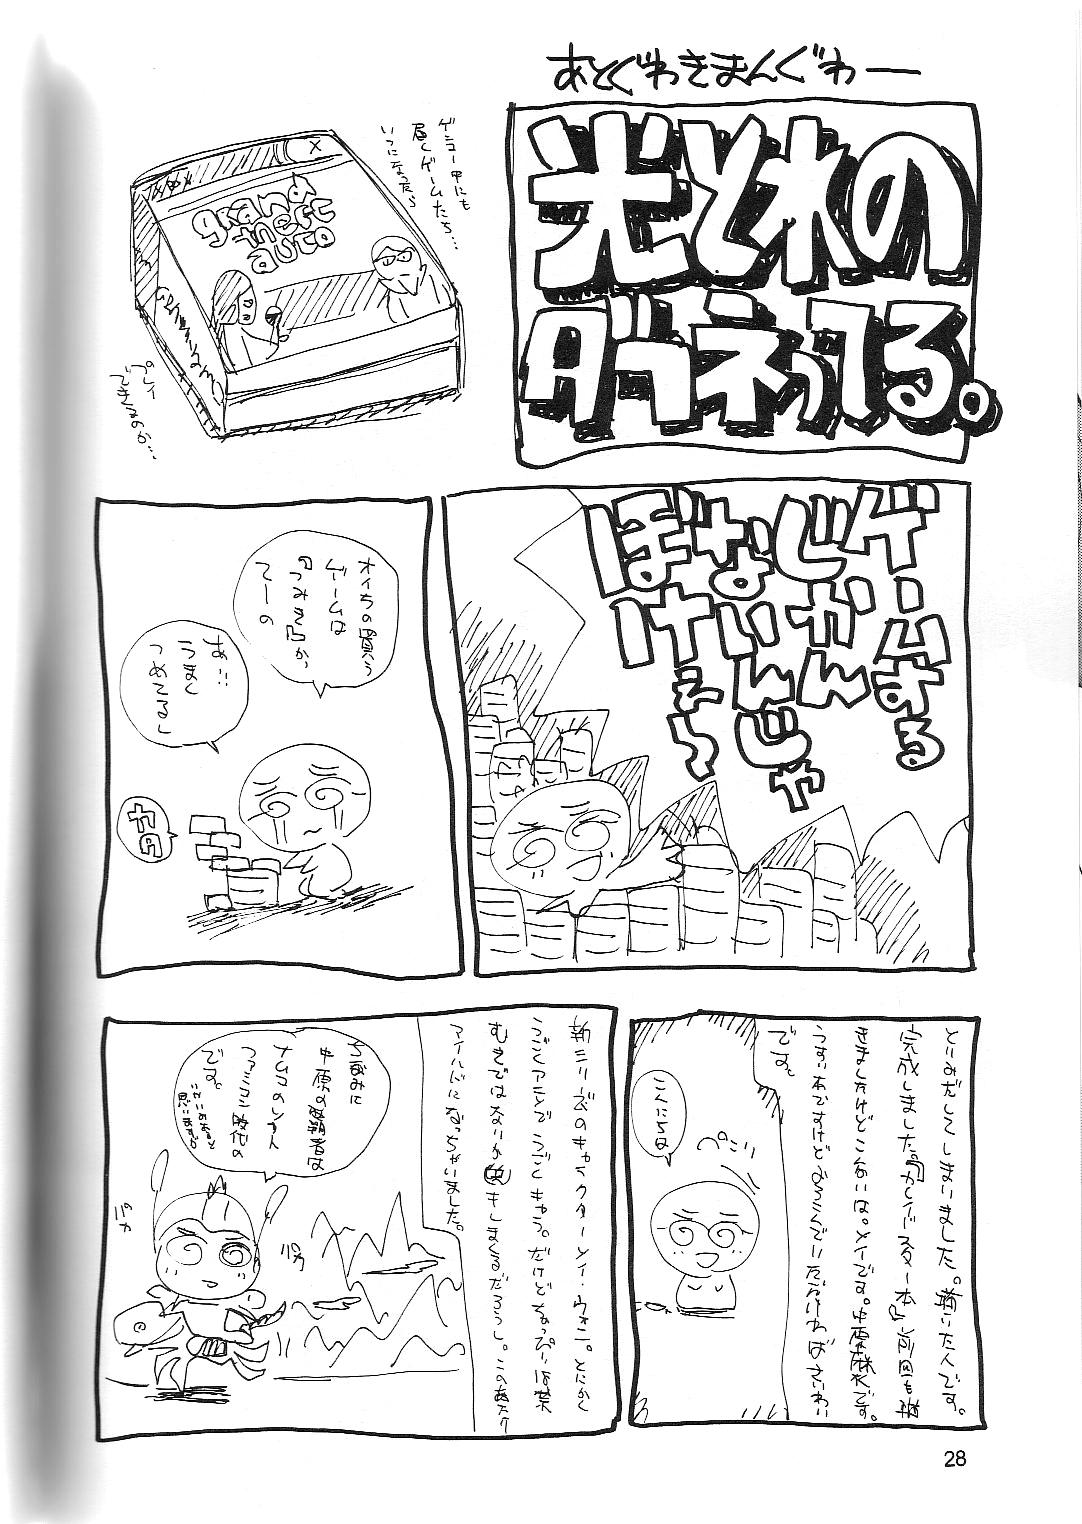 あとぐわきまんぐわー
光と水の
ダーネってる。
ゲンコー中にも
届くゲームたち…
いつになったら
プレイ
できるのか…
X
grand
theft
auto
ゲームする
じかん
ないんじゃ
ぼけぇ〜
オイらの買う
ゲームは
『つみき』か
てーの
あ…
うまく
つめてるし
とりみだしてしまいました。描いた人です。
完成しました。『カレイドスター本』前回も描
きましたけどこんかいは。メイです。中原麻衣です。
うすい本ですけどよろこんでいただければさいわい
です。
こんにちは
ぺこり
新シリーズのキャラクターメイ・ウォン。とにかく
うごくアニメでうごくキャラ。だけどなっぴりは禁
アイルドになっちゃいました。
ちなみに
中原の覇者は
ナムコの
ファミコン時代の
です。
パカ
パカ
28